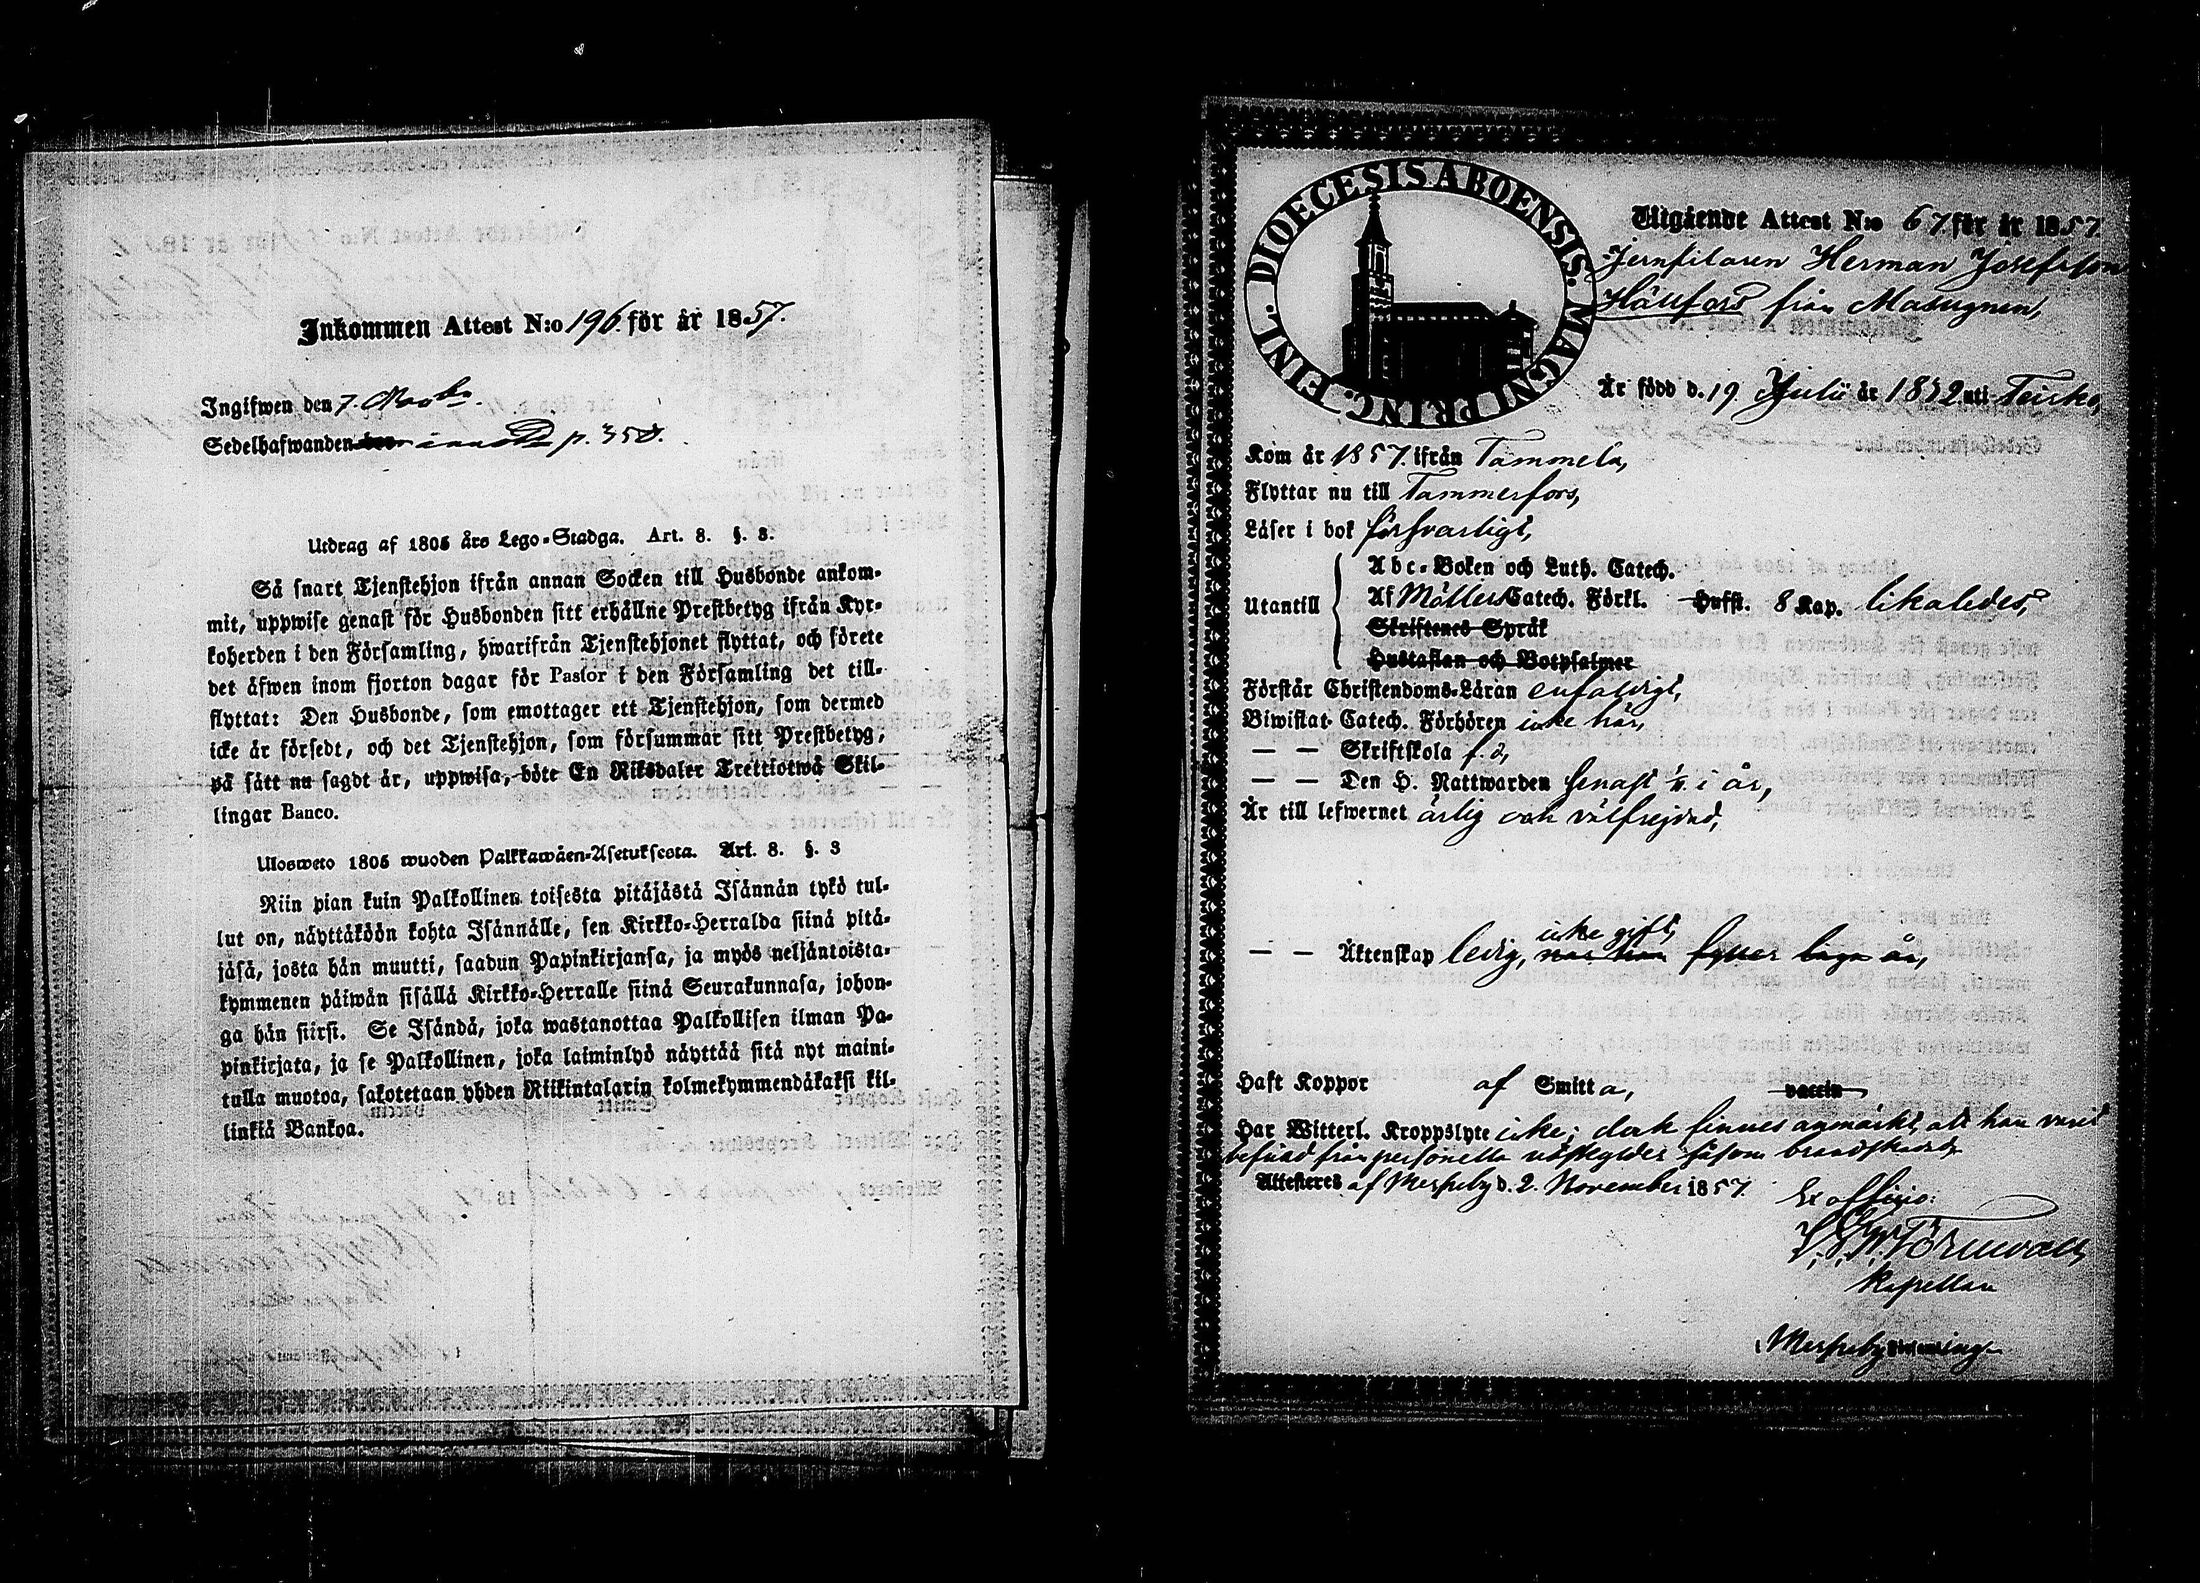 Inkommen Attest N:o 196. för år 1857.
Ingifwen den 7. Novbr.
Sedelhafwanden p. 350.
Utdrag af 1805 års Lego-Stadga. Art. 8. §. 3.
Så snart Tjenstehjon ifrån annan Socken till Husbonde ankom-
mit, uppwise genast för Husbonden sitt erhållne Prestbetyg ifrån Kyr-
koherden i den Församling, hwarifrån Tjenstehjonet flyttat, och förete
det äfwen inom fjorton dagar för Pastor i den Församling det till-
flyttat: Den Husbonde, som emottager ett Tjenstehjon, som dermed
icke är försedt, och det Tjenstehjon, som försummar sitt Prestbetyg,
på sätt nu sagdt är, uppwisa, böte En Riksdaler Trettiotwå Skil-
lingar Banco.
Ulosweto 1805 wuoden Palkkawäen-Asetuksesta. Art. 8. §. 3
Niin pian kuin Palkollinen toisesta pitäjästä Isännän tykö tul-
lut on, näyttäköön kohta Isännälle, sen Kirkko-Herralda siinä pitä-
jäsä, josta hän muutti, saadun Papinkirjansa, ja myös neljäntoista-
kymmenen päiwän sisällä Kirkko-Herralle siinä Seurakunnasa, johon-
ga hän siirsi. Se Isändä, joka wastanottaa Palkollisen ilman Pa-
pinkirjata, ja se Palkollinen, joka laiminlyö näyttää sitä nyt maini-
tulla muotoa, sakotetaan yhden Riikintalarin kolmekymmendäkaksi kil-
linkiä Bankoa.
DIOECESIS ABOENSIS. MAGNI PRINC. FINL.
Utgående Attest N:o 67 för år 1857
Jernfilaren Herman Josefsson
Hällfors från Masugnen,
Är född d. 19 Julii år 1832 uti Teisko,
Kom år 1857. ifrån Tammela,
Flyttar nu till Tammerfors,
Läser i bok försvarligt,
Abc-Boken och Luth. Catech.
Utantill Af Möllers Catech. Förkl. Husst. 8 Kap. likaledes,
Skriftenes Språk
Hustaflan och Botpsalmer
Förstår Christendoms-Läran enfaldigt,
Biwistat Catech. Förhören icke här,
— — Skriftskola f. d,
— — Den H. Nattwarden senast i år,
Är till lefwernet ärlig och välfrejdad,
icke gift,
— — Äktenskap ledig, när han fyller laga år,
Haft Koppor af Smitta, vaccin
Har Witterl. Kroppslyte icke; dock finnes anmärkt, att han varit
befriad från personella utskylder såsom brandskadad.
Attesteras af Merseby d. 2. November 1857.
Ex officio:
Törnwall,
Kapellan
Merseby